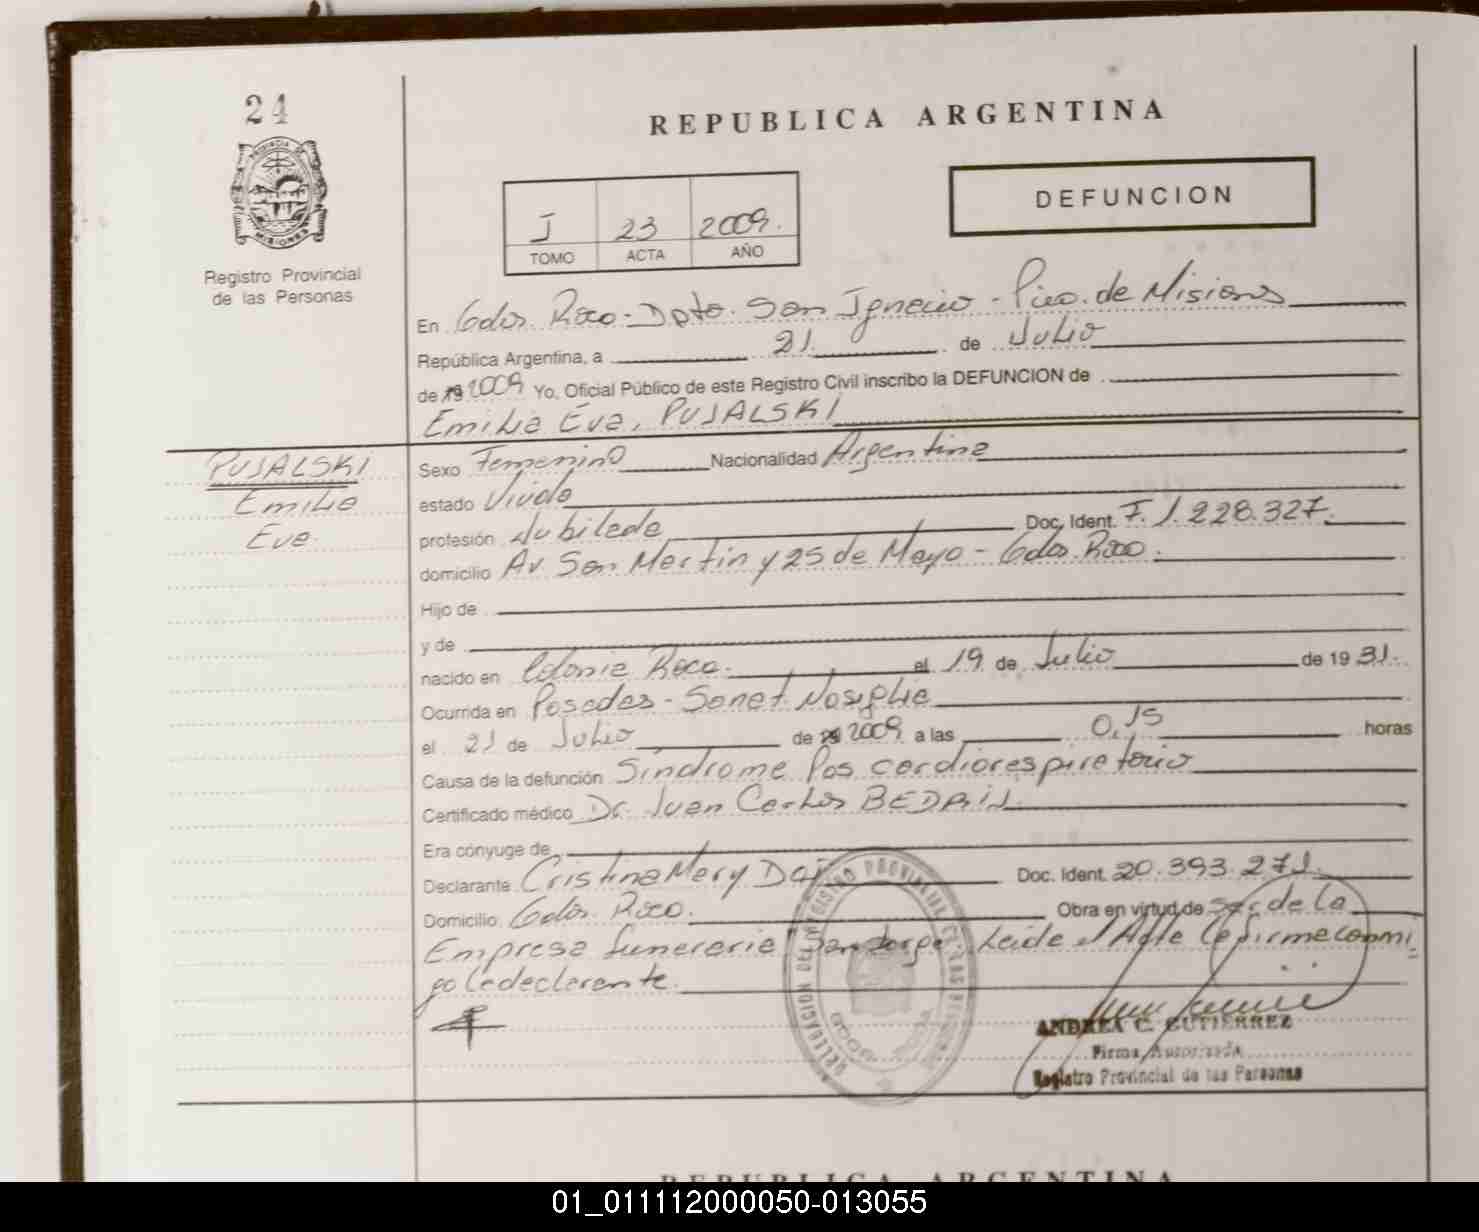 24
PROVINCIA DE
MISIONES
Registro Provincial
de las Personas
REPUBLICA ARGENTINA
DEFUNCION
I 23 2009.
TOMO ACTA AÑO
En Gdor. Roca - Dpto. San Ignacio - Pcia. de Misiones
República Argentina, a 21 de Julio
de 19 2009 Yo, Oficial Público de este Registro Civil inscribo la DEFUNCION de
Emilia Eva, PUJALSKI
PUJALSKI
Emilia
Eva
Sexo Femenino Nacionalidad Argentina
estado Viuda
profesión Jubilada Doc. Ident. F. 1.228.327.
domicilio Av. San Martin y 25 de Mayo - Gdor. Roca.
Hijo de
y de
nacido en Colonia Roca. el 19 de Julio de 19 31.
Ocurrida en Posadas - Sanat. Nosiglia
el 21 de Julio de 19 2009 a las 0,15 horas
Causa de la defunción Síndrome Pos cardiorespiratorio
Certificado médico Dr. Juan Carlos
Era cónyuge de
Declarante Cristina Mary Doc. Ident. 20.393.271.
Domicilio Gdor. Roca. Obra en virtud de Ser de la
Empresa funeraria San Jorge. Leida el Acta la firma conmi
go la declarante.
DELEGACION DEL REGISTRO PROVINCIAL DE LAS PERSONAS
GDOR. ROCA
ANDREA C. GUTIERREZ
Firma Autorizada
Registro Provincial de las Personas
REPUBLICA ARGENTINA
01_011112000050-013055